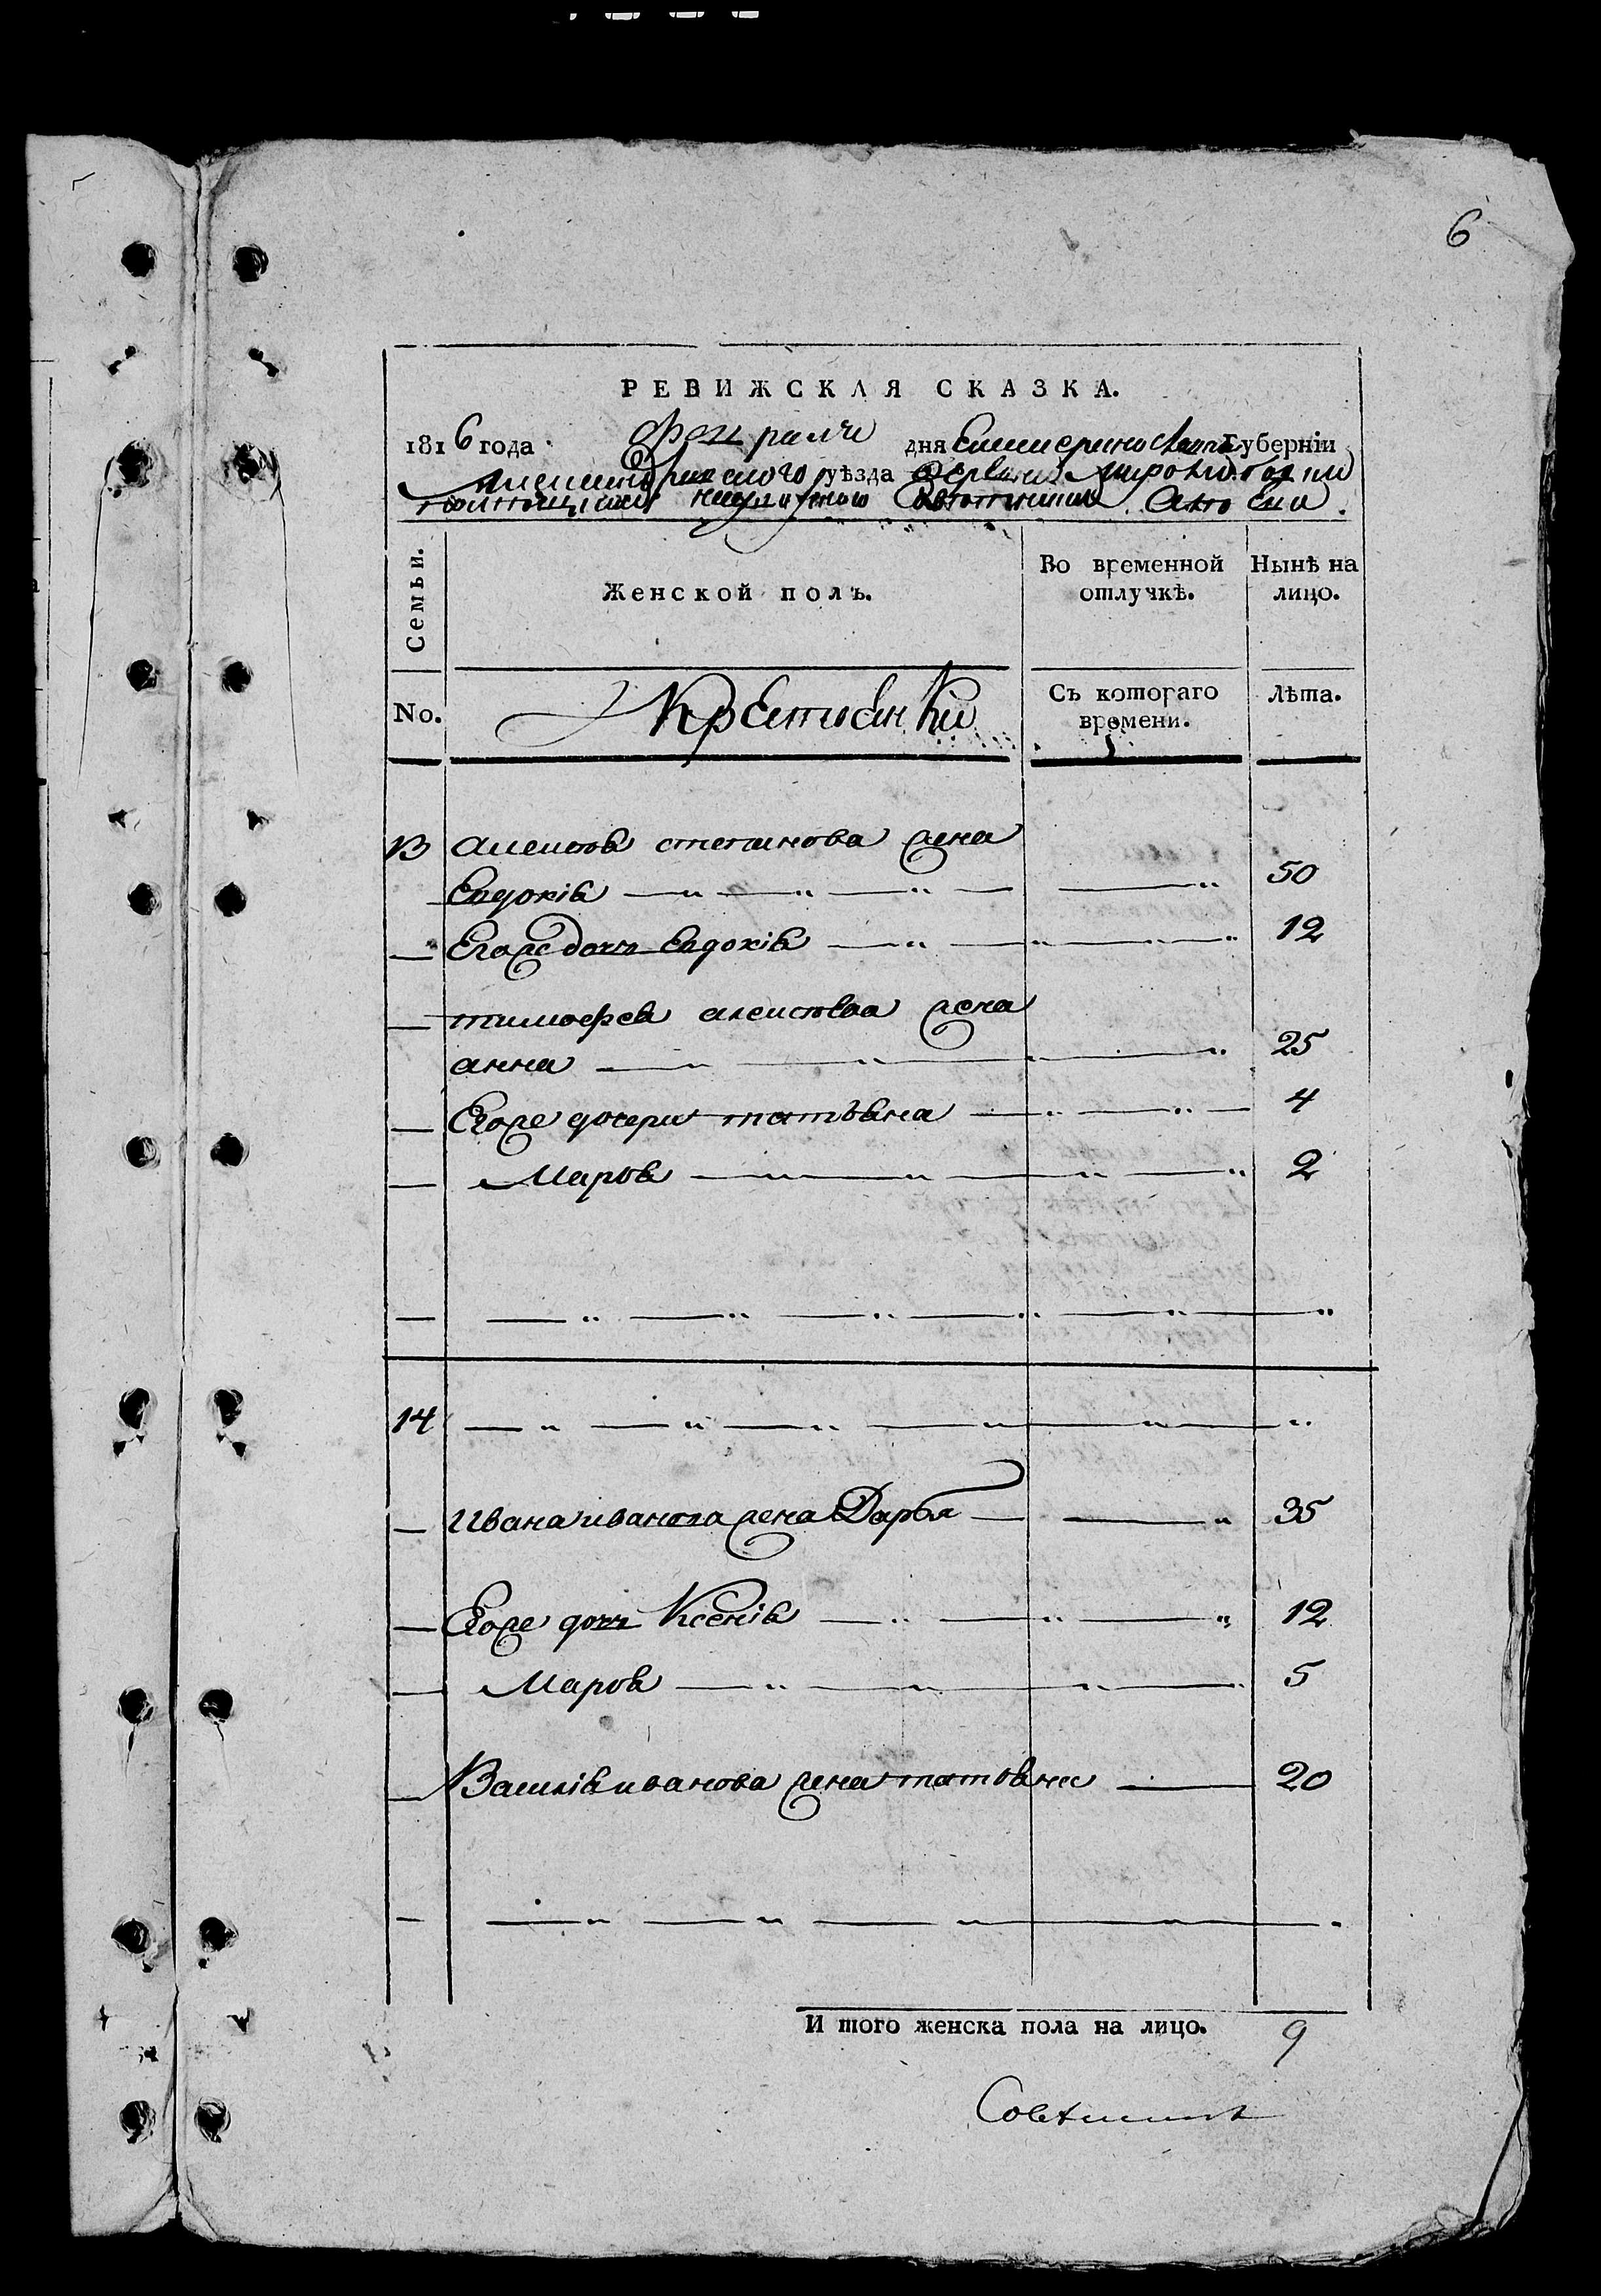 6
РЕВИЖСКАЯ СКАЗКА.
1816 года Февраля дня Екатеринославской Губерніи
Александрійскаго уѣзда
Семьи.
Женской полъ.
Во временной отлучкѣ.
Нынѣ на лицо.
No.
Крестьянки
Съ котораго времени.
Лѣта.
13 алексѣя степанова жена
Евдокія 50
Егоже дочь Евдокія 12
тимофея алексѣева жена
анна 25
Егоже дочери татьяна 4
Марья 2
14
ивана иванова жена Дарья 35
Егоже дочь Ксенія 12
Марья 5
Василія иванова жена татьяна 20
И того женска пола на лицо. 9